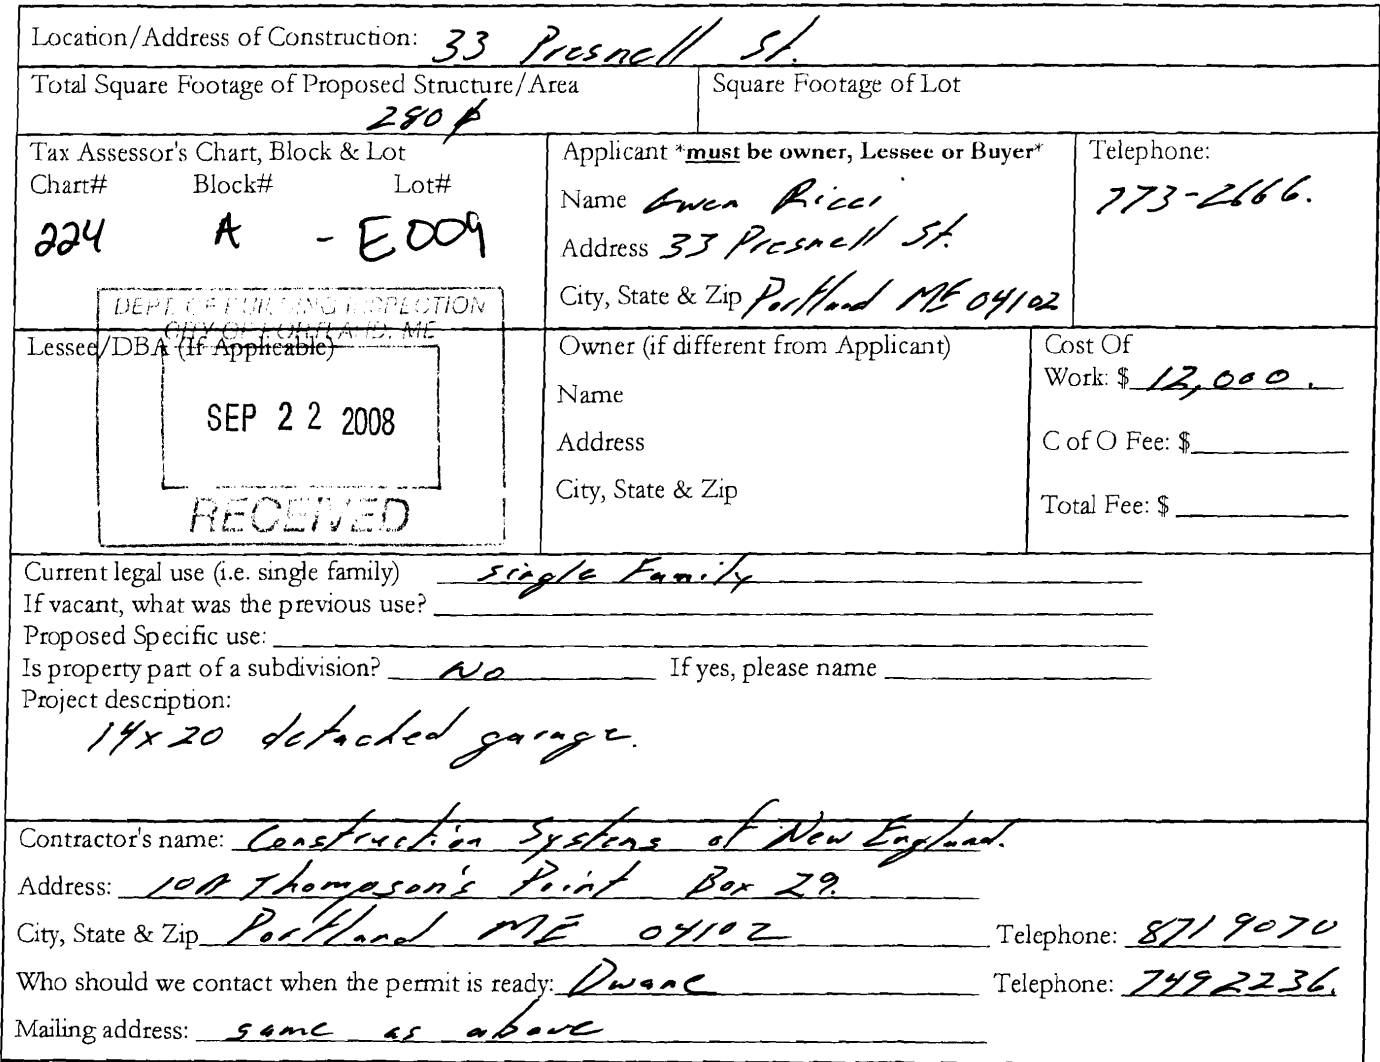 Location/Address of Construction: 33 Presnell St.
Total Square Footage of Proposed Structure/Area
280
Square Footage of Lot
Tax Assessor's Chart, Block & Lot
Chart# Block# Lot#
224 A - E009
Applicant *must be owner, Lessee or Buyer*
Name Gwen Ricci
Address 33 Presnell St.
City, State & Zip Portland ME 04102
Telephone:
773-2666.
DEPT. OF BUILDING INSPECTION
CITY OF PORTLAND, ME
Lessee/DBA (If Applicable)
SEP 22 2008
RECEIVED
Owner (if different from Applicant)
Name
Address
City, State & Zip
Cost Of
Work: $ 12,000.
C of O Fee: $
Total Fee: $
Current legal use (i.e. single family) single Family
If vacant, what was the previous use?
Proposed Specific use:
Is property part of a subdivision? No If yes, please name
Project description:
14x20 detached garage.
Contractor's name: Construction Systems of New England.
Address: Thompson's Point Box 29.
City, State & Zip Portland ME 04102 Telephone: 871 9070
Who should we contact when the permit is ready: Dwane Telephone: 749 2236.
Mailing address: same as above